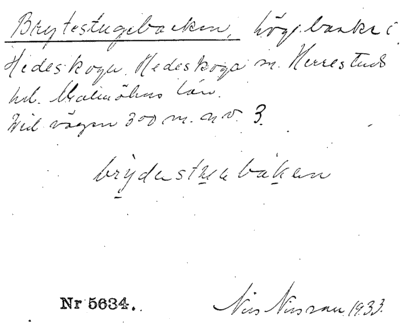 Brytestugebacken, hög backe i
Hedeskoga, Hedeskoga sn. Herrestads
hd. Malmöhus län.
Vid vägen 300 m. nv. 3.
brydestuabákan
Nr 5634.
Nils Nilsson. 1933.